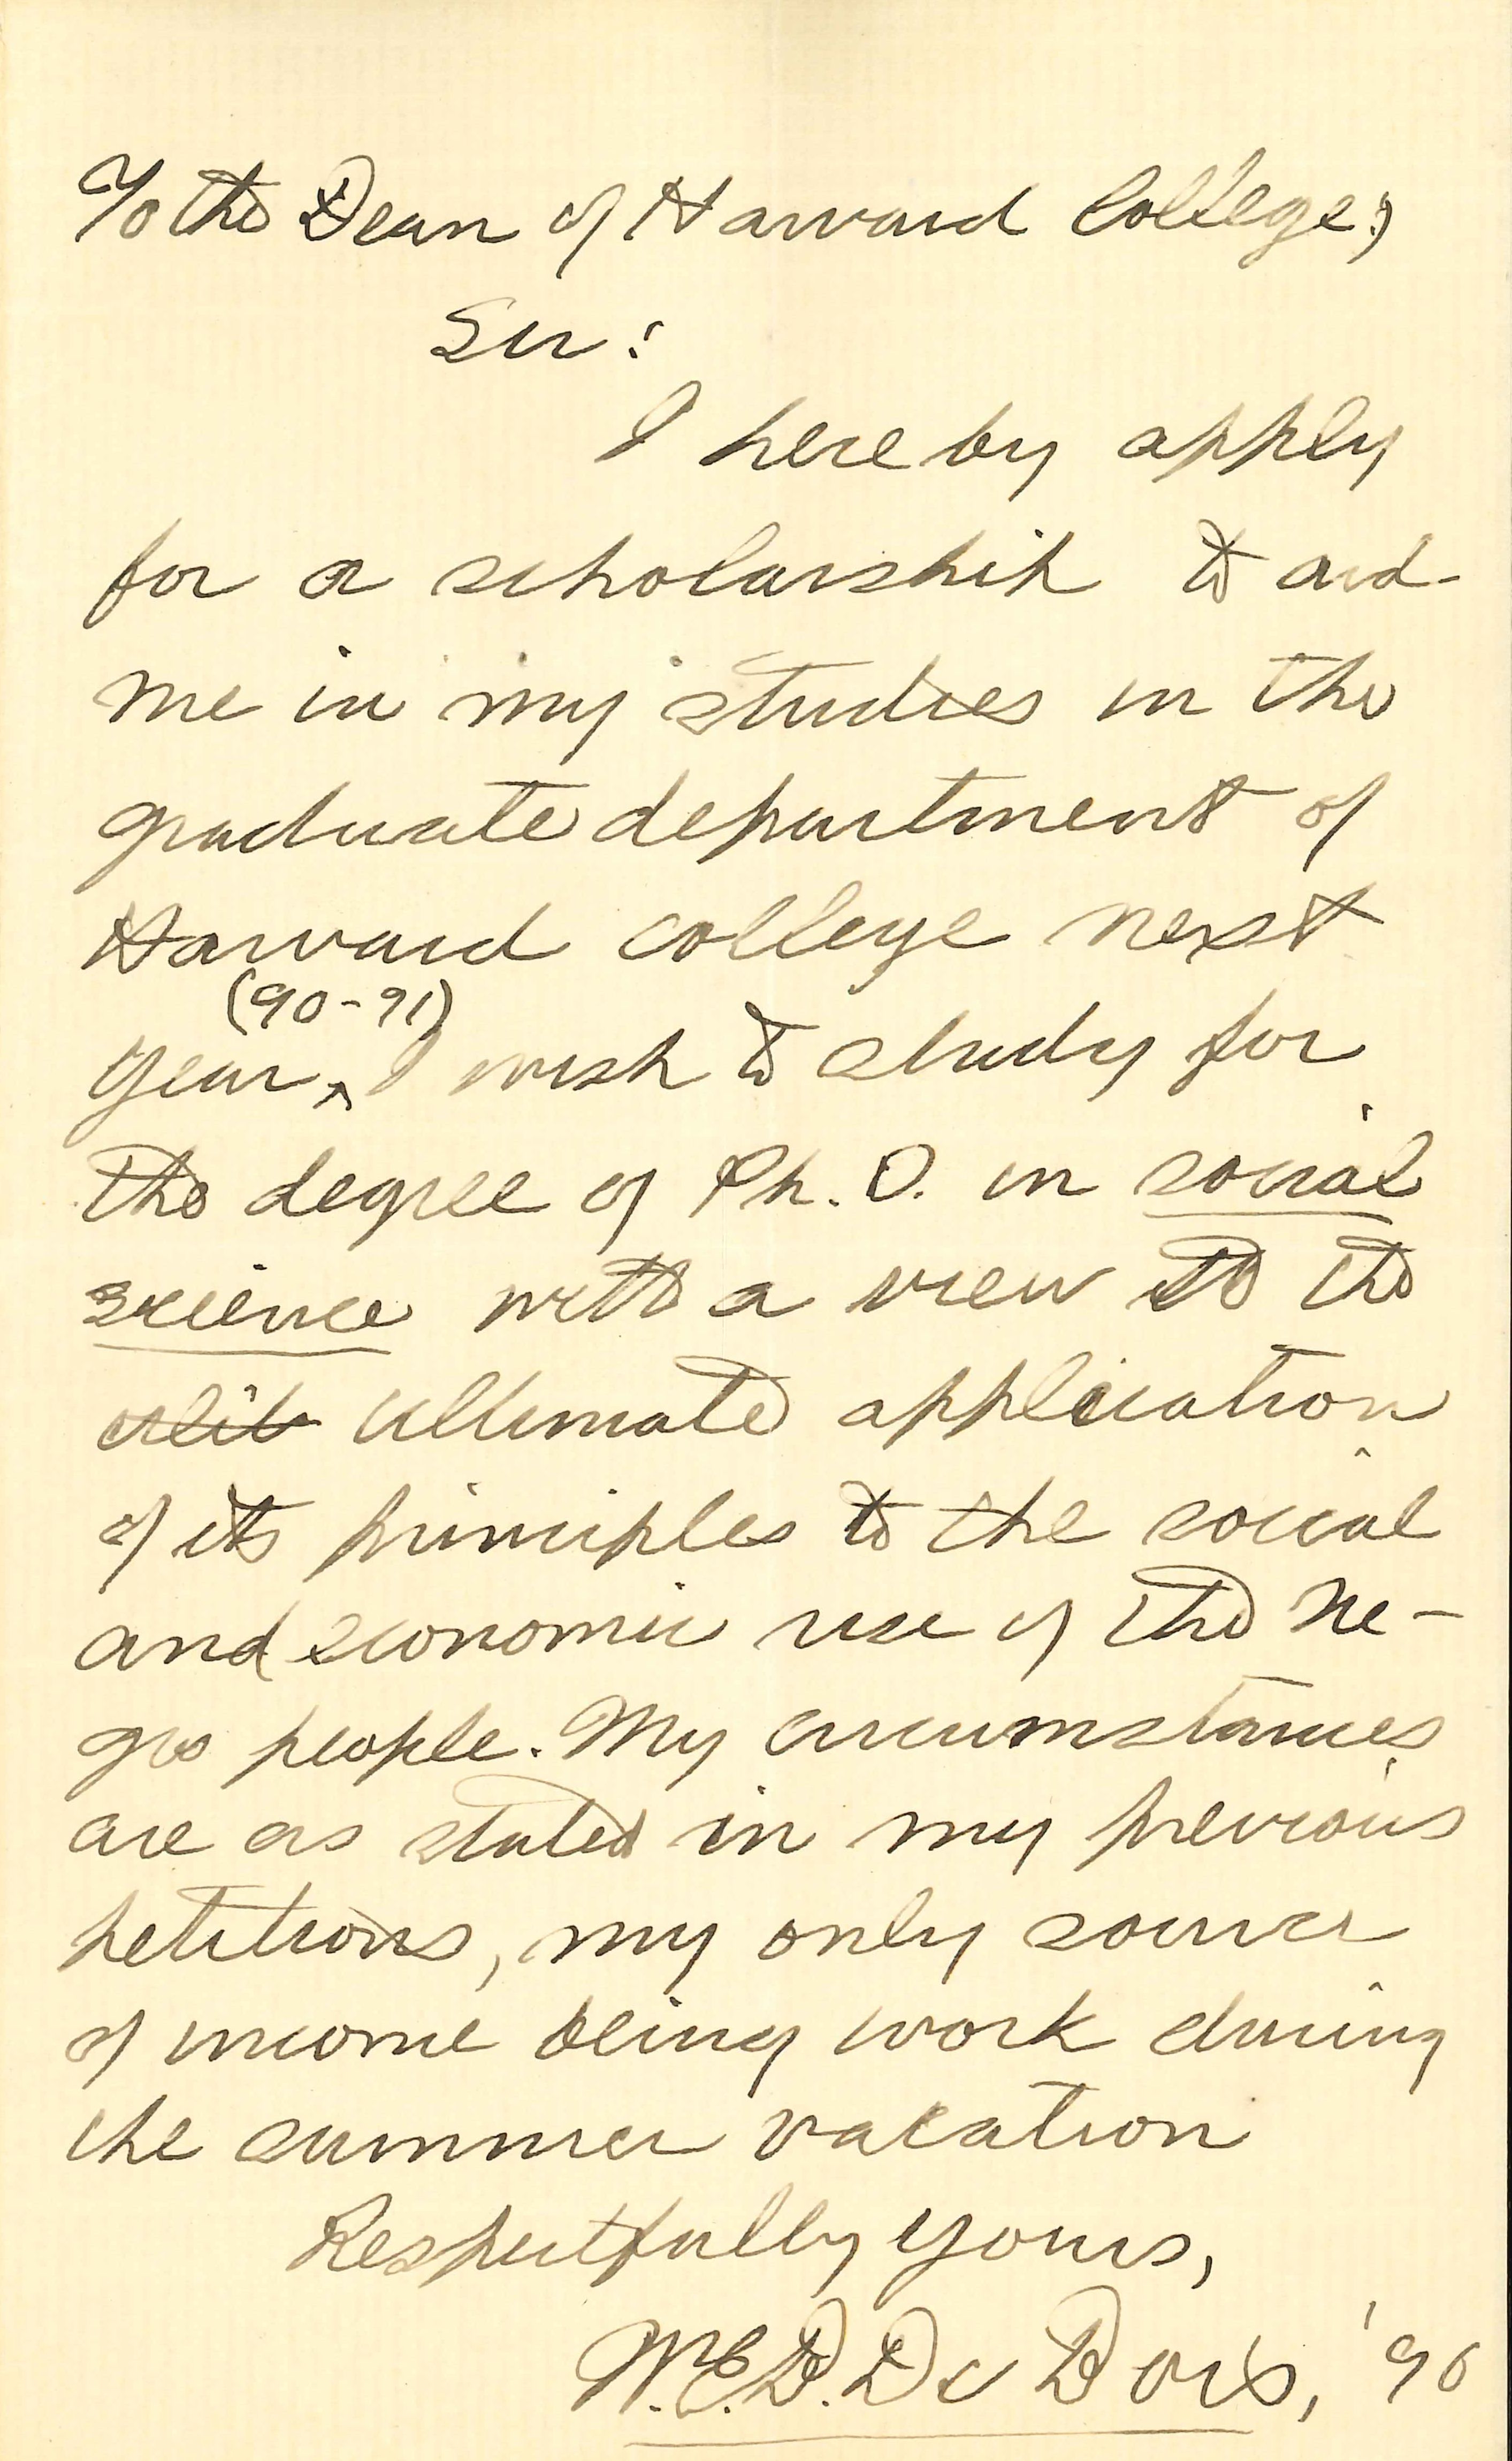 To the Dean of Harvard College;
Sir:
I hereby apply
for a scholarship to aid
me in my studies in the
graduate department of
Harvard college next
(90-91)
year, ^ I wish to study for
the degree of Ph. D. in social
science with a view to the
ultimate application
of its principles to the social
and economic rise of the Ne-
gro people. My circumstances
are as stated in my previous
petitions, my only source
of income being work during
the summer vacation
Respectfully yours,
W.E.B. Du Bois, '90